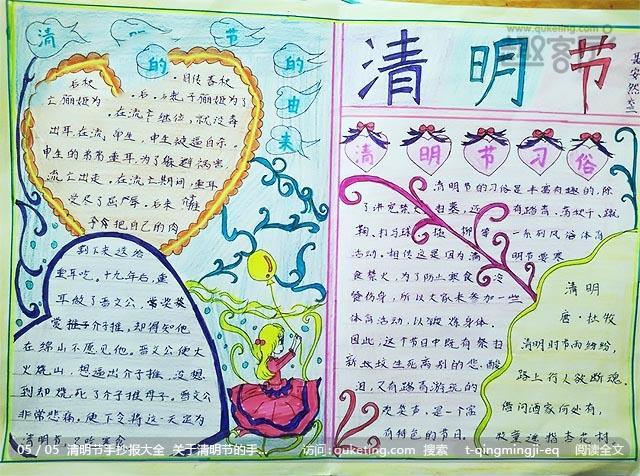 清明节的由来
出耳在流
申生的弟弟重耳,为了躲避祸害,
流亡出走。在流亡期间,重耳
受尽了屈辱。后来
重耳吃。十九年后,重
耳做了晋文公,
爱 介子推,却得知他
在绵山不愿见他。晋文公便大
火烧山,想逼出介子推,没想
到却烧死了介子推母子。晋文公
非常悲痛。便下令将这一天定为
清明节
清明节
清明节习俗
清明节的习俗是丰富有趣的,除
了讲究禁火、扫墓,还有踏青、荡秋千、蹴
鞠、打马球、插柳等一系列风俗体育
活动。相传这是因为清明节要寒
食禁火,为了防止寒食 冷
餐伤身,所以大家来参加一些
体育活动,以锻炼身体。
因此,这个节日中既有祭扫
新坟生死离别的悲酸
泪,又有踏青游玩的
欢笑声,是一个富
有特色的节日。
清明
唐·杜牧
清明时节雨纷纷,
路上行人欲断魂。
借问酒家何处有,
牧童遥指杏花村。
www.quketing.com
05 / 05 清明节手抄报大全 关于清明节的手... 访问:quketing.com 搜索 t-qingmingji-eq 阅读全文